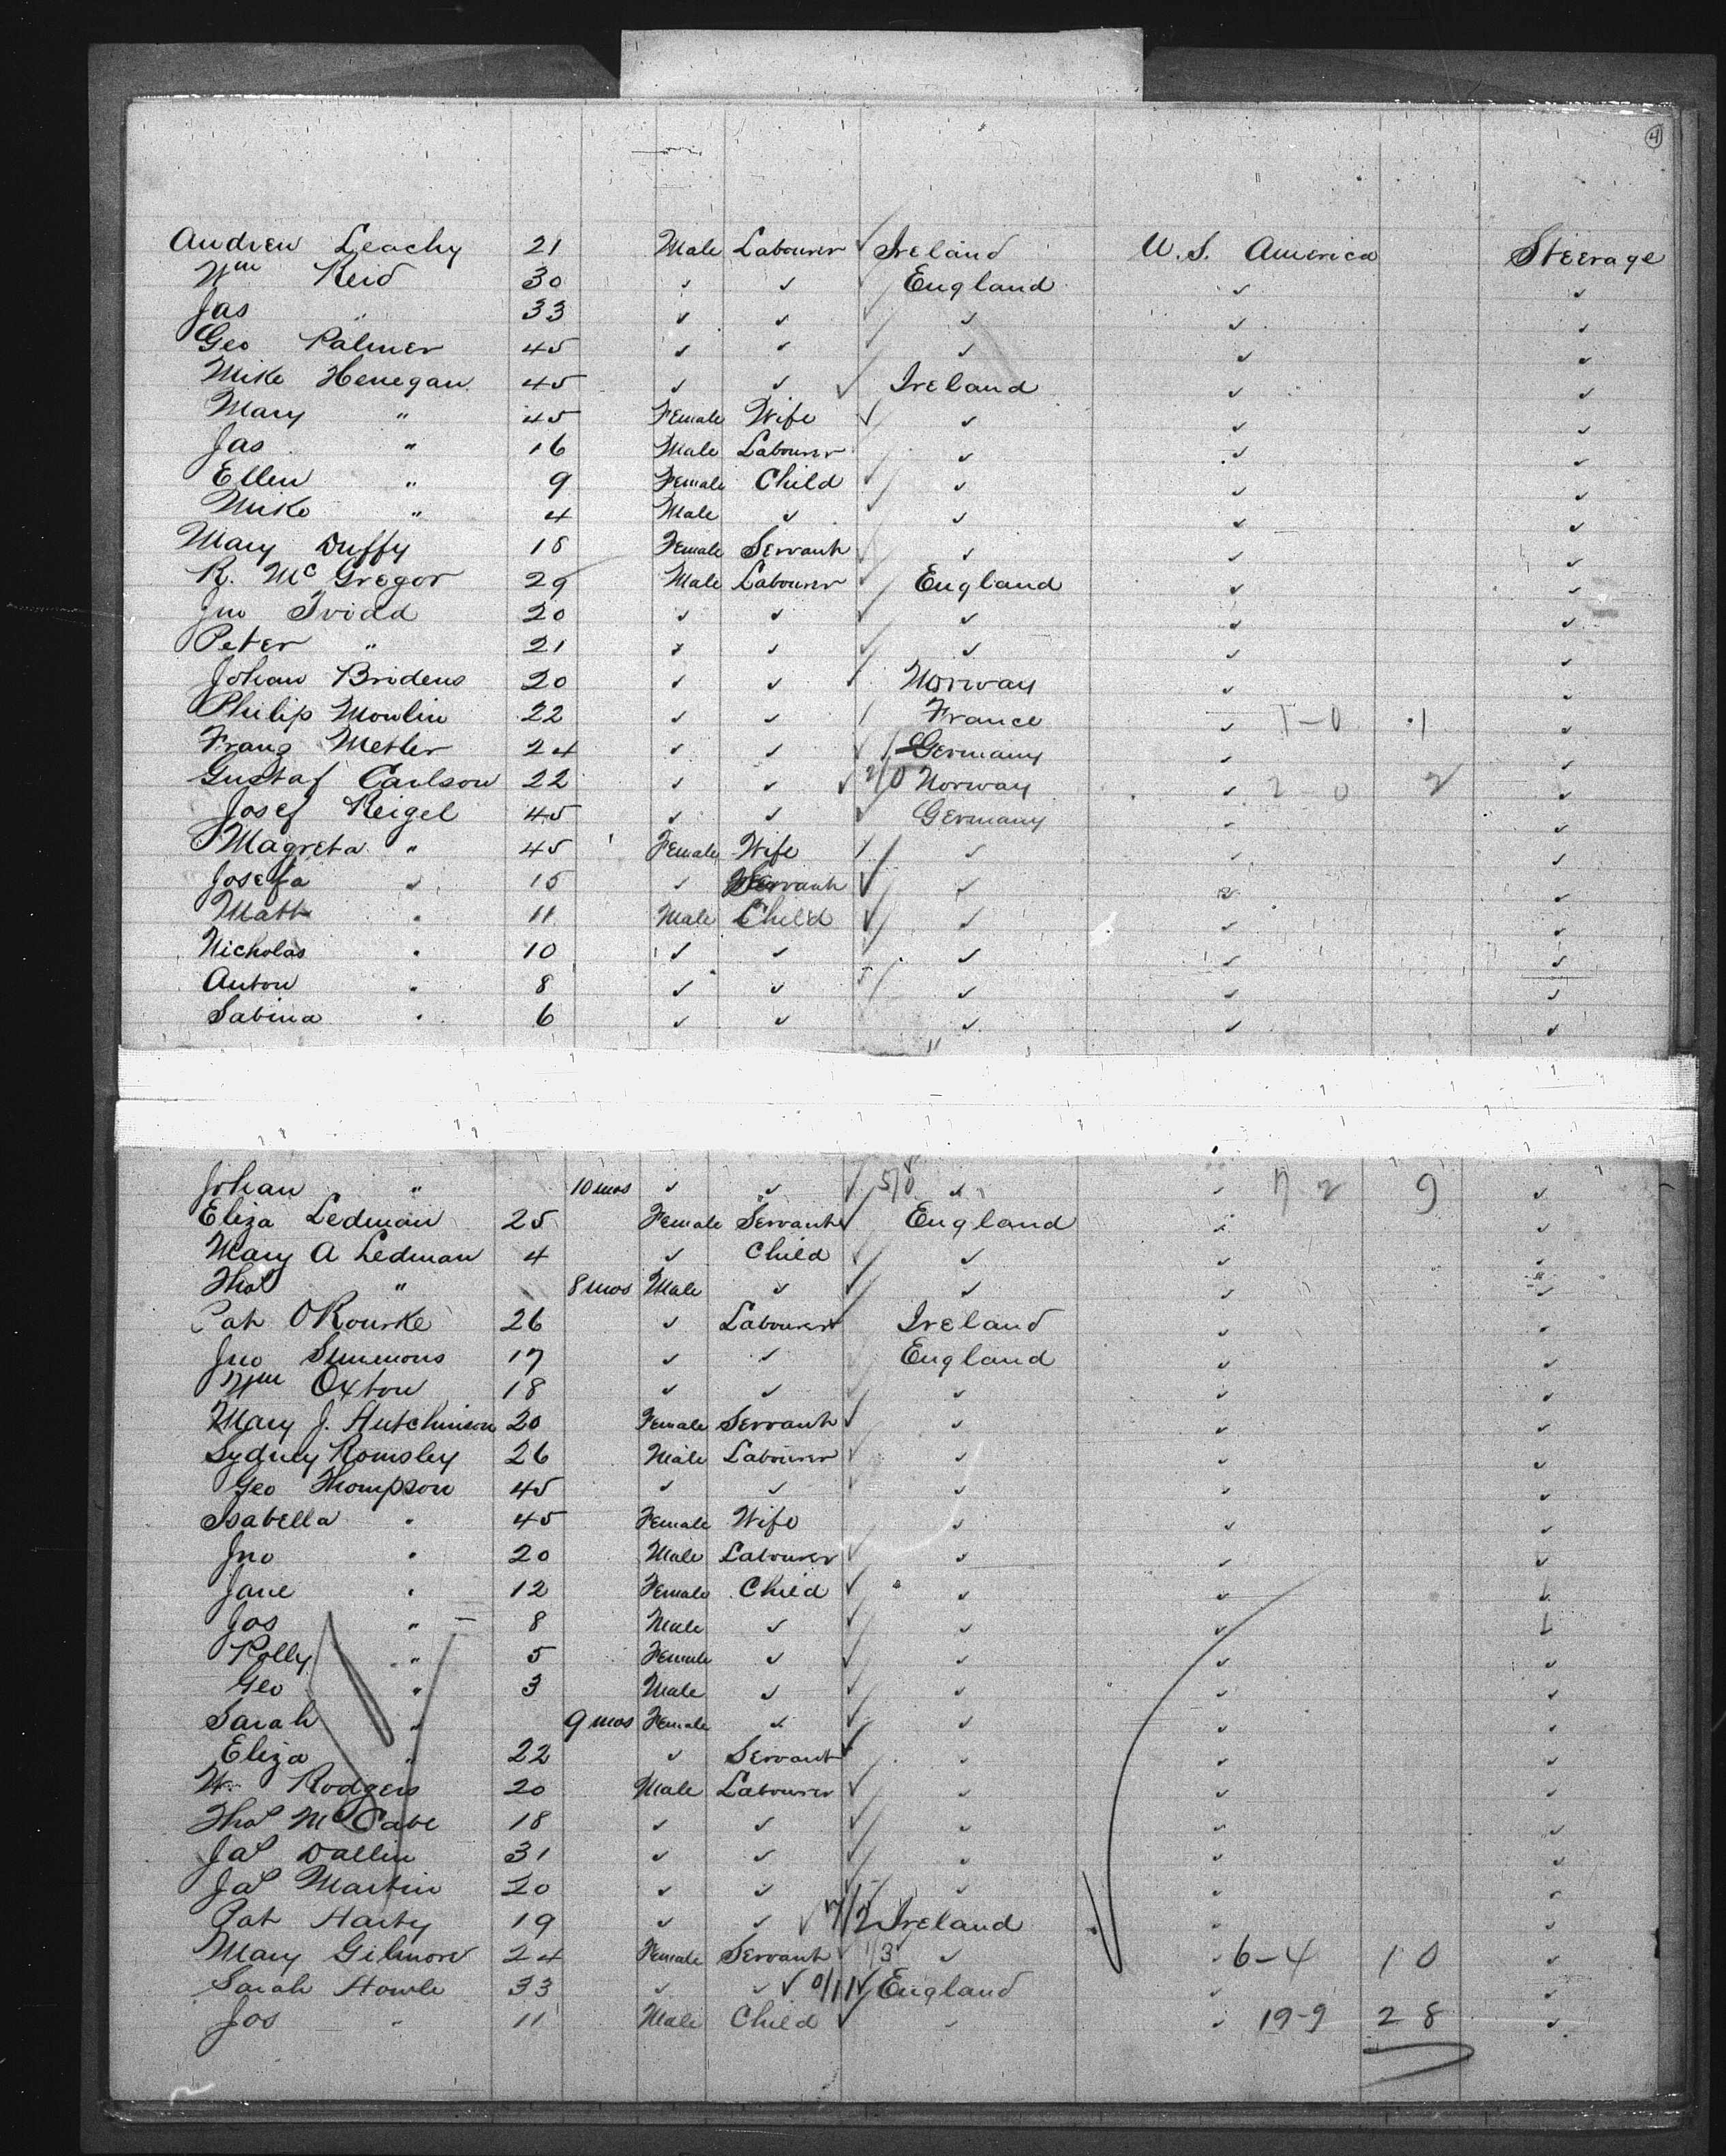 4
Andrew Leachy 21 Male Labourer ✓ Ireland U.S. America Steerage
Wm Reid 30 ✓ ✓ England ✓ ✓
Jas " 33 ✓ ✓ ✓ ✓ ✓
Geo Palmer 45 ✓ ✓ ✓ ✓ ✓
Mike Henegan 45 ✓ ✓ ✓ Ireland ✓ ✓
Mary " 45 Female Wife ✓ ✓ ✓ ✓
Jas " 16 Male Labourer ✓ ✓ ✓
Ellen " 9 Female Child ✓ ✓ ✓
Mike " 4 Male ✓ ✓ ✓ ✓
Mary Duffy 18 Female Servant ✓ ✓ ✓
R. McGregor 29 Male Labourer England ✓ ✓
Jno 20 ✓ ✓ ✓ ✓ ✓
Peter " 21 ✓ ✓ ✓ ✓ ✓
Johan Bridens 20 ✓ ✓ Norway ✓ ✓
Philip Moulin 22 ✓ ✓ France ✓ 1-0 1 ✓
Franz Metler 24 ✓ ✓ ✓ Germany ✓ ✓
Gustaf Carlson 22 ✓ ✓ ✓ 2/0 Norway ✓ 2-0 2 ✓
Josef Reigel 45 ✓ ✓ ✓ Germany ✓ ✓
Magreta " 45 Female Wife ✓ ✓ ✓ ✓
Josefa " 15 ✓ Servant ✓ ✓ ✓ ✓
Matt " 11 Male Child ✓ ✓ ✓ ✓
Nicholas " 10 ✓ ✓ ✓ ✓ ✓
Anton " 8 ✓ ✓ ✓ ✓ ✓
Sabina " 6 ✓ ✓ ✓ ✓ ✓
Johan " 10 mos ✓ ✓ ✓ 5/0 ✓ ✓ 7 2 9 ✓
Eliza Ledman 25 Female Servant ✓ England ✓ ✓
Mary A Ledman 4 ✓ Child ✓ ✓ ✓ ✓
Thos " 8 mos Male ✓ ✓ ✓ ✓ ✓
Pat O'Rourke 26 ✓ Labourer ✓ Ireland ✓ ✓
Jno Simmons 17 ✓ ✓ England ✓ ✓
Wm Oxton 18 ✓ ✓ ✓ ✓ ✓ ✓
Mary J. Hutchinson 20 Female Servant ✓ ✓ ✓ ✓
Sydney Romsley 26 Male Labourer ✓ ✓ ✓ ✓
Geo Thompson 45 ✓ ✓ ✓ ✓ ✓ ✓
Isabella " 45 Female Wife ✓ ✓ ✓
Jno " 20 Male Labourer ✓ ✓ ✓ ✓
Jane " 12 Female Child ✓ ✓ ✓ ✓
Jos " 8 Male ✓ ✓ ✓ ✓
Polly " 5 Female ✓ ✓ ✓ ✓ ✓
Geo " 3 Male ✓ ✓ ✓ ✓ ✓
Sarah " 9 mos Female ✓ ✓ ✓ ✓ ✓
Eliza " 22 ✓ Servant ✓ ✓ ✓ ✓
Wm Rodgers 20 Male Labourer ✓ ✓ ✓ ✓
Thos McCabe 18 ✓ ✓ ✓ ✓ ✓ ✓
Jas Dallin 31 ✓ ✓ ✓ ✓ ✓ ✓
Jas Martin 20 ✓ ✓ ✓ ✓ ✓ ✓
Pat Harty 19 ✓ ✓ ✓ 7/2 Ireland ✓ ✓
Mary Gilmore 24 Female Servant ✓ 1/3 ✓ ✓ 6-4 10 ✓
Sarah Howle 33 ✓ ✓ ✓ 0/11 ✓ England ✓ ✓
Jos " 11 Male Child ✓ ✓ ✓ 19-9 28 ✓